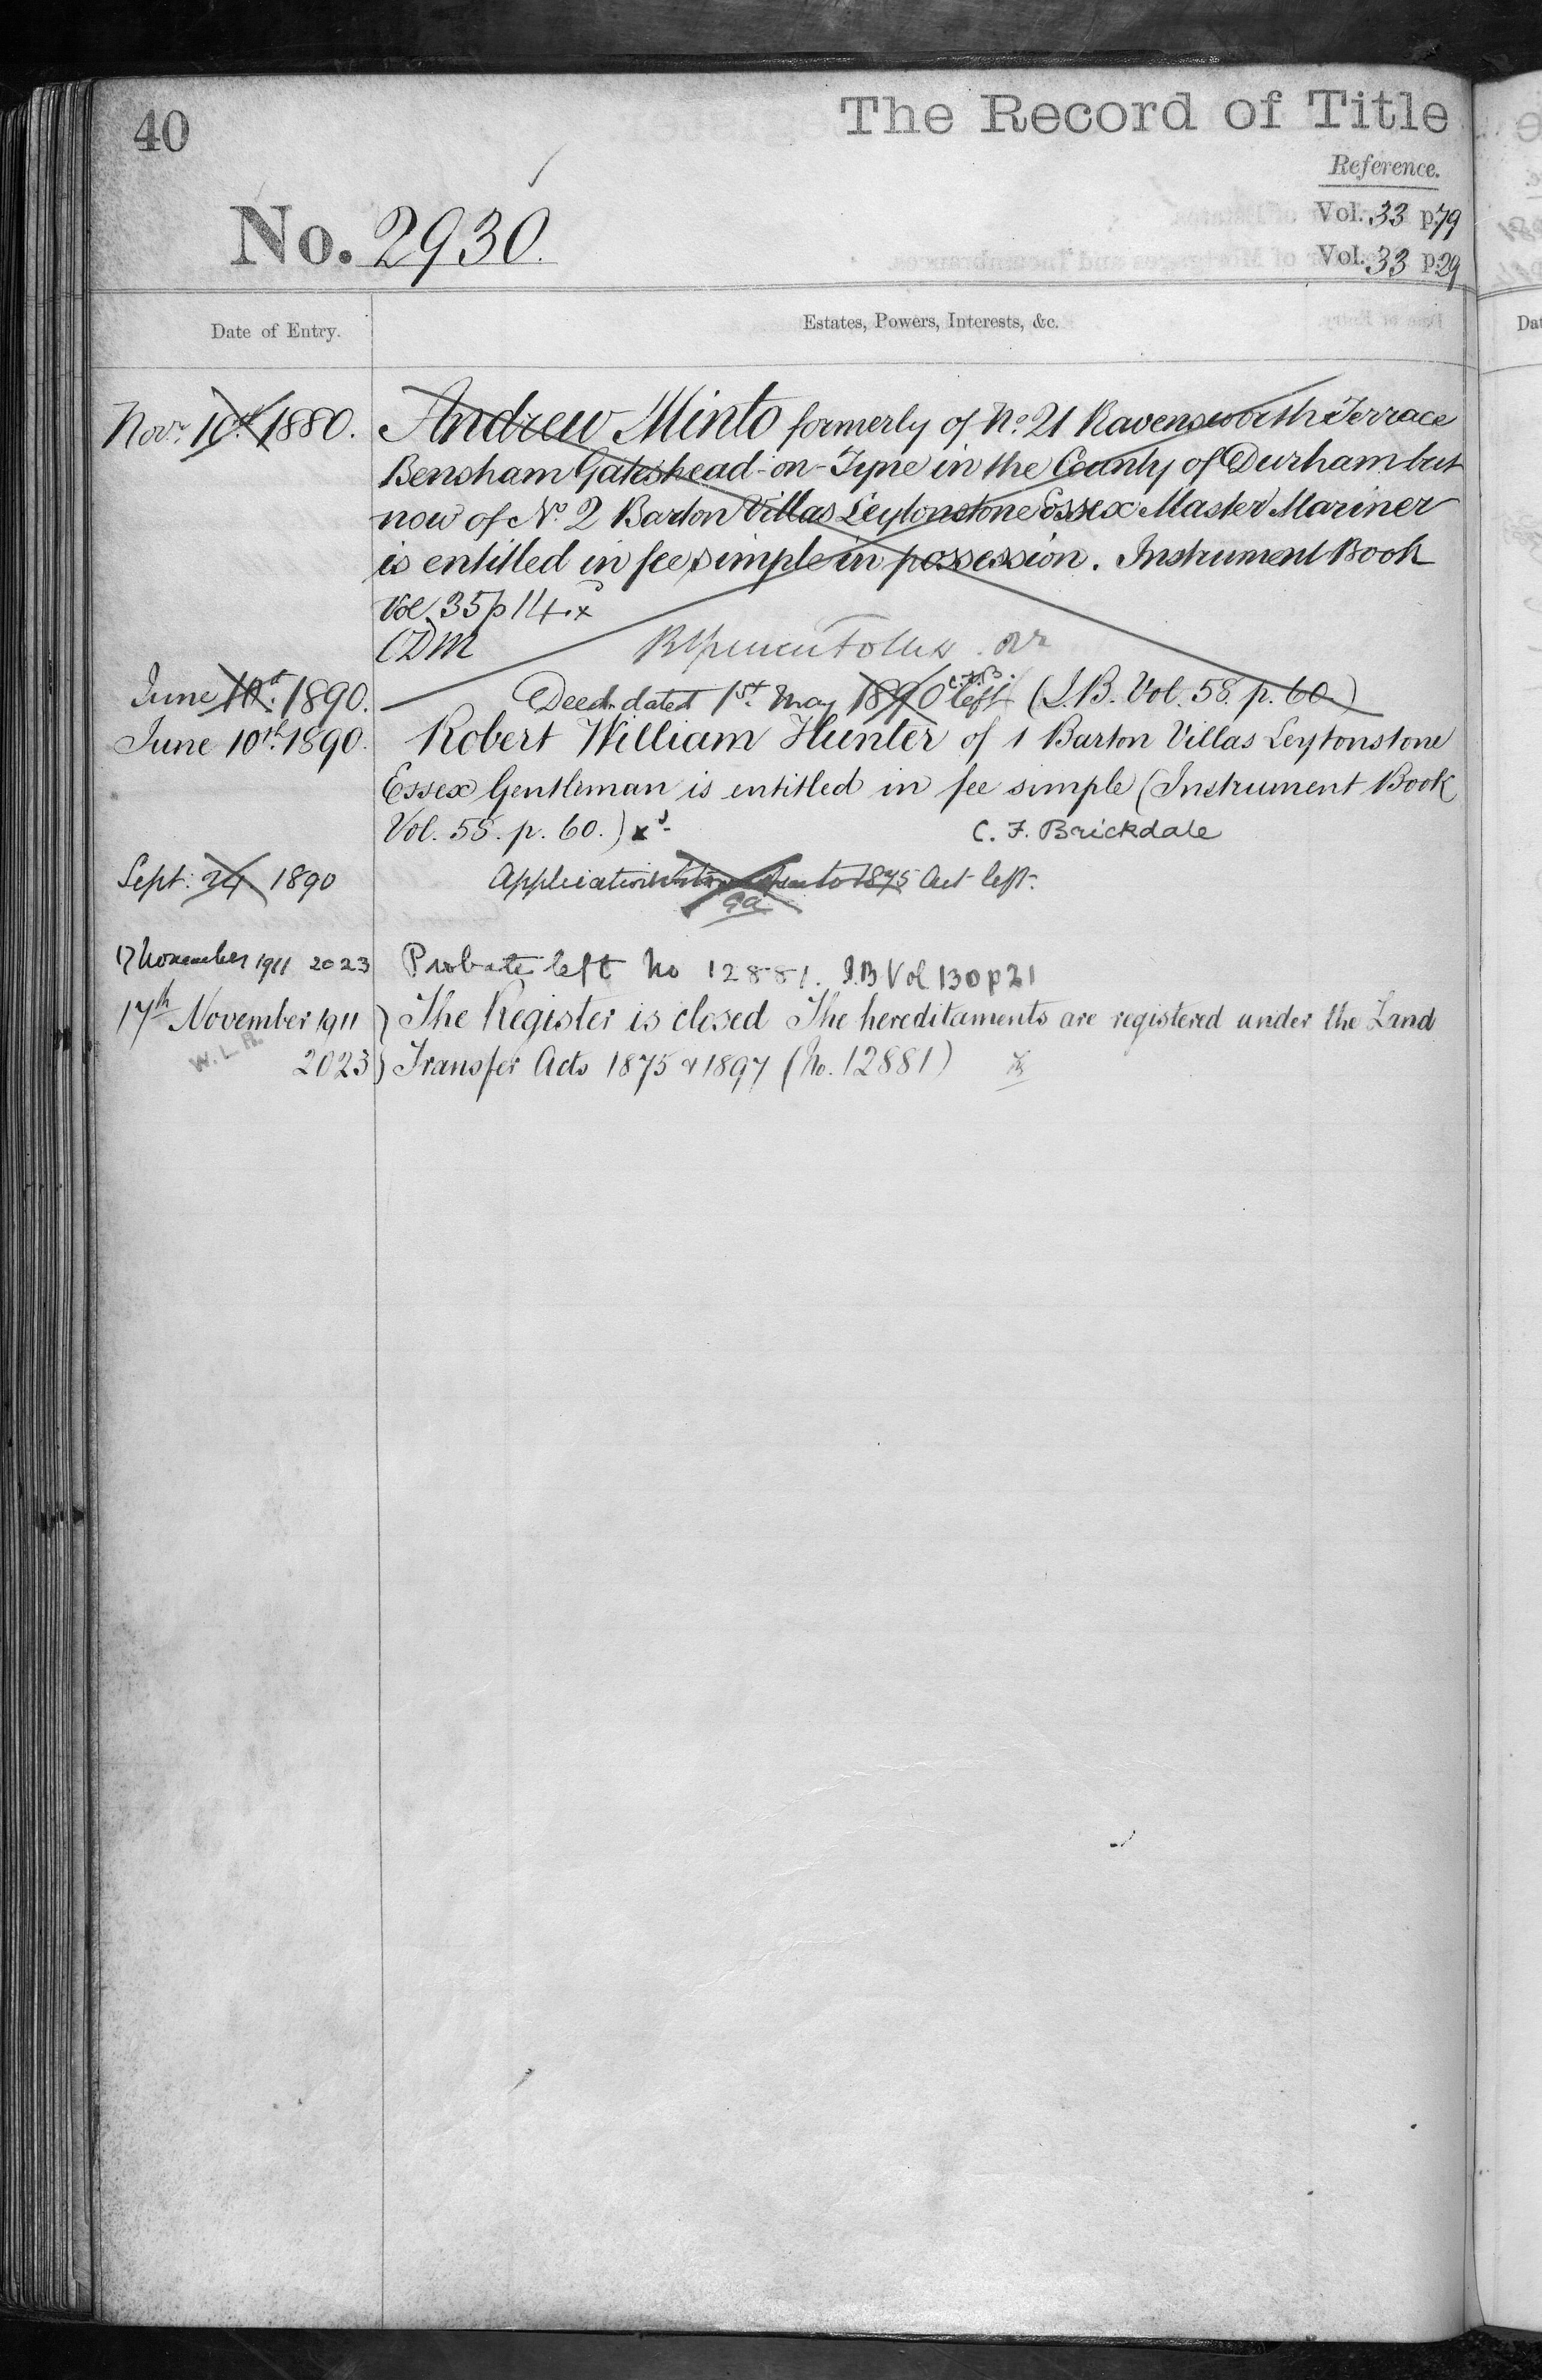 40
The Record of Title
Reference.
No. 2930.
Vol. 33 p. 79
Vol. 33 p. 29
Date of Entry.
Estates, Powers, Interests, &c.
Novr. 10th 1880. Andrew Minto formerly of No. 21 Ravensworth Terrace
Bensham Gateshead-on-Tyne in the County of Durham but
now of No. 2 Barton Villas Leytonstone Essex Master Mariner
is entitled in fee simple in possession. Instrument Book
Vol 35 p 14. x
CDM
June 1890. Deed dated 1st. May 1890 left (I.B. Vol. 58. p. 60)
C.F.B.
June 10th. 1890. Robert William Hunter of 1 Barton Villas Leytonstone
Essex Gentleman is entitled in fee simple (Instrument Book
Vol. 58. p. 60.) x C. F. Brickdale
Sept: 24 1890 Application 1875 Act left.
17 November 1911 2023 Probate left No 12881. I.B Vol 130 p 21
17th November 1911 } The Register is closed The hereditaments are registered under the Land
W.L.R.
2023 } Transfer Acts 1875 & 1897 (No. 12881)
Dat